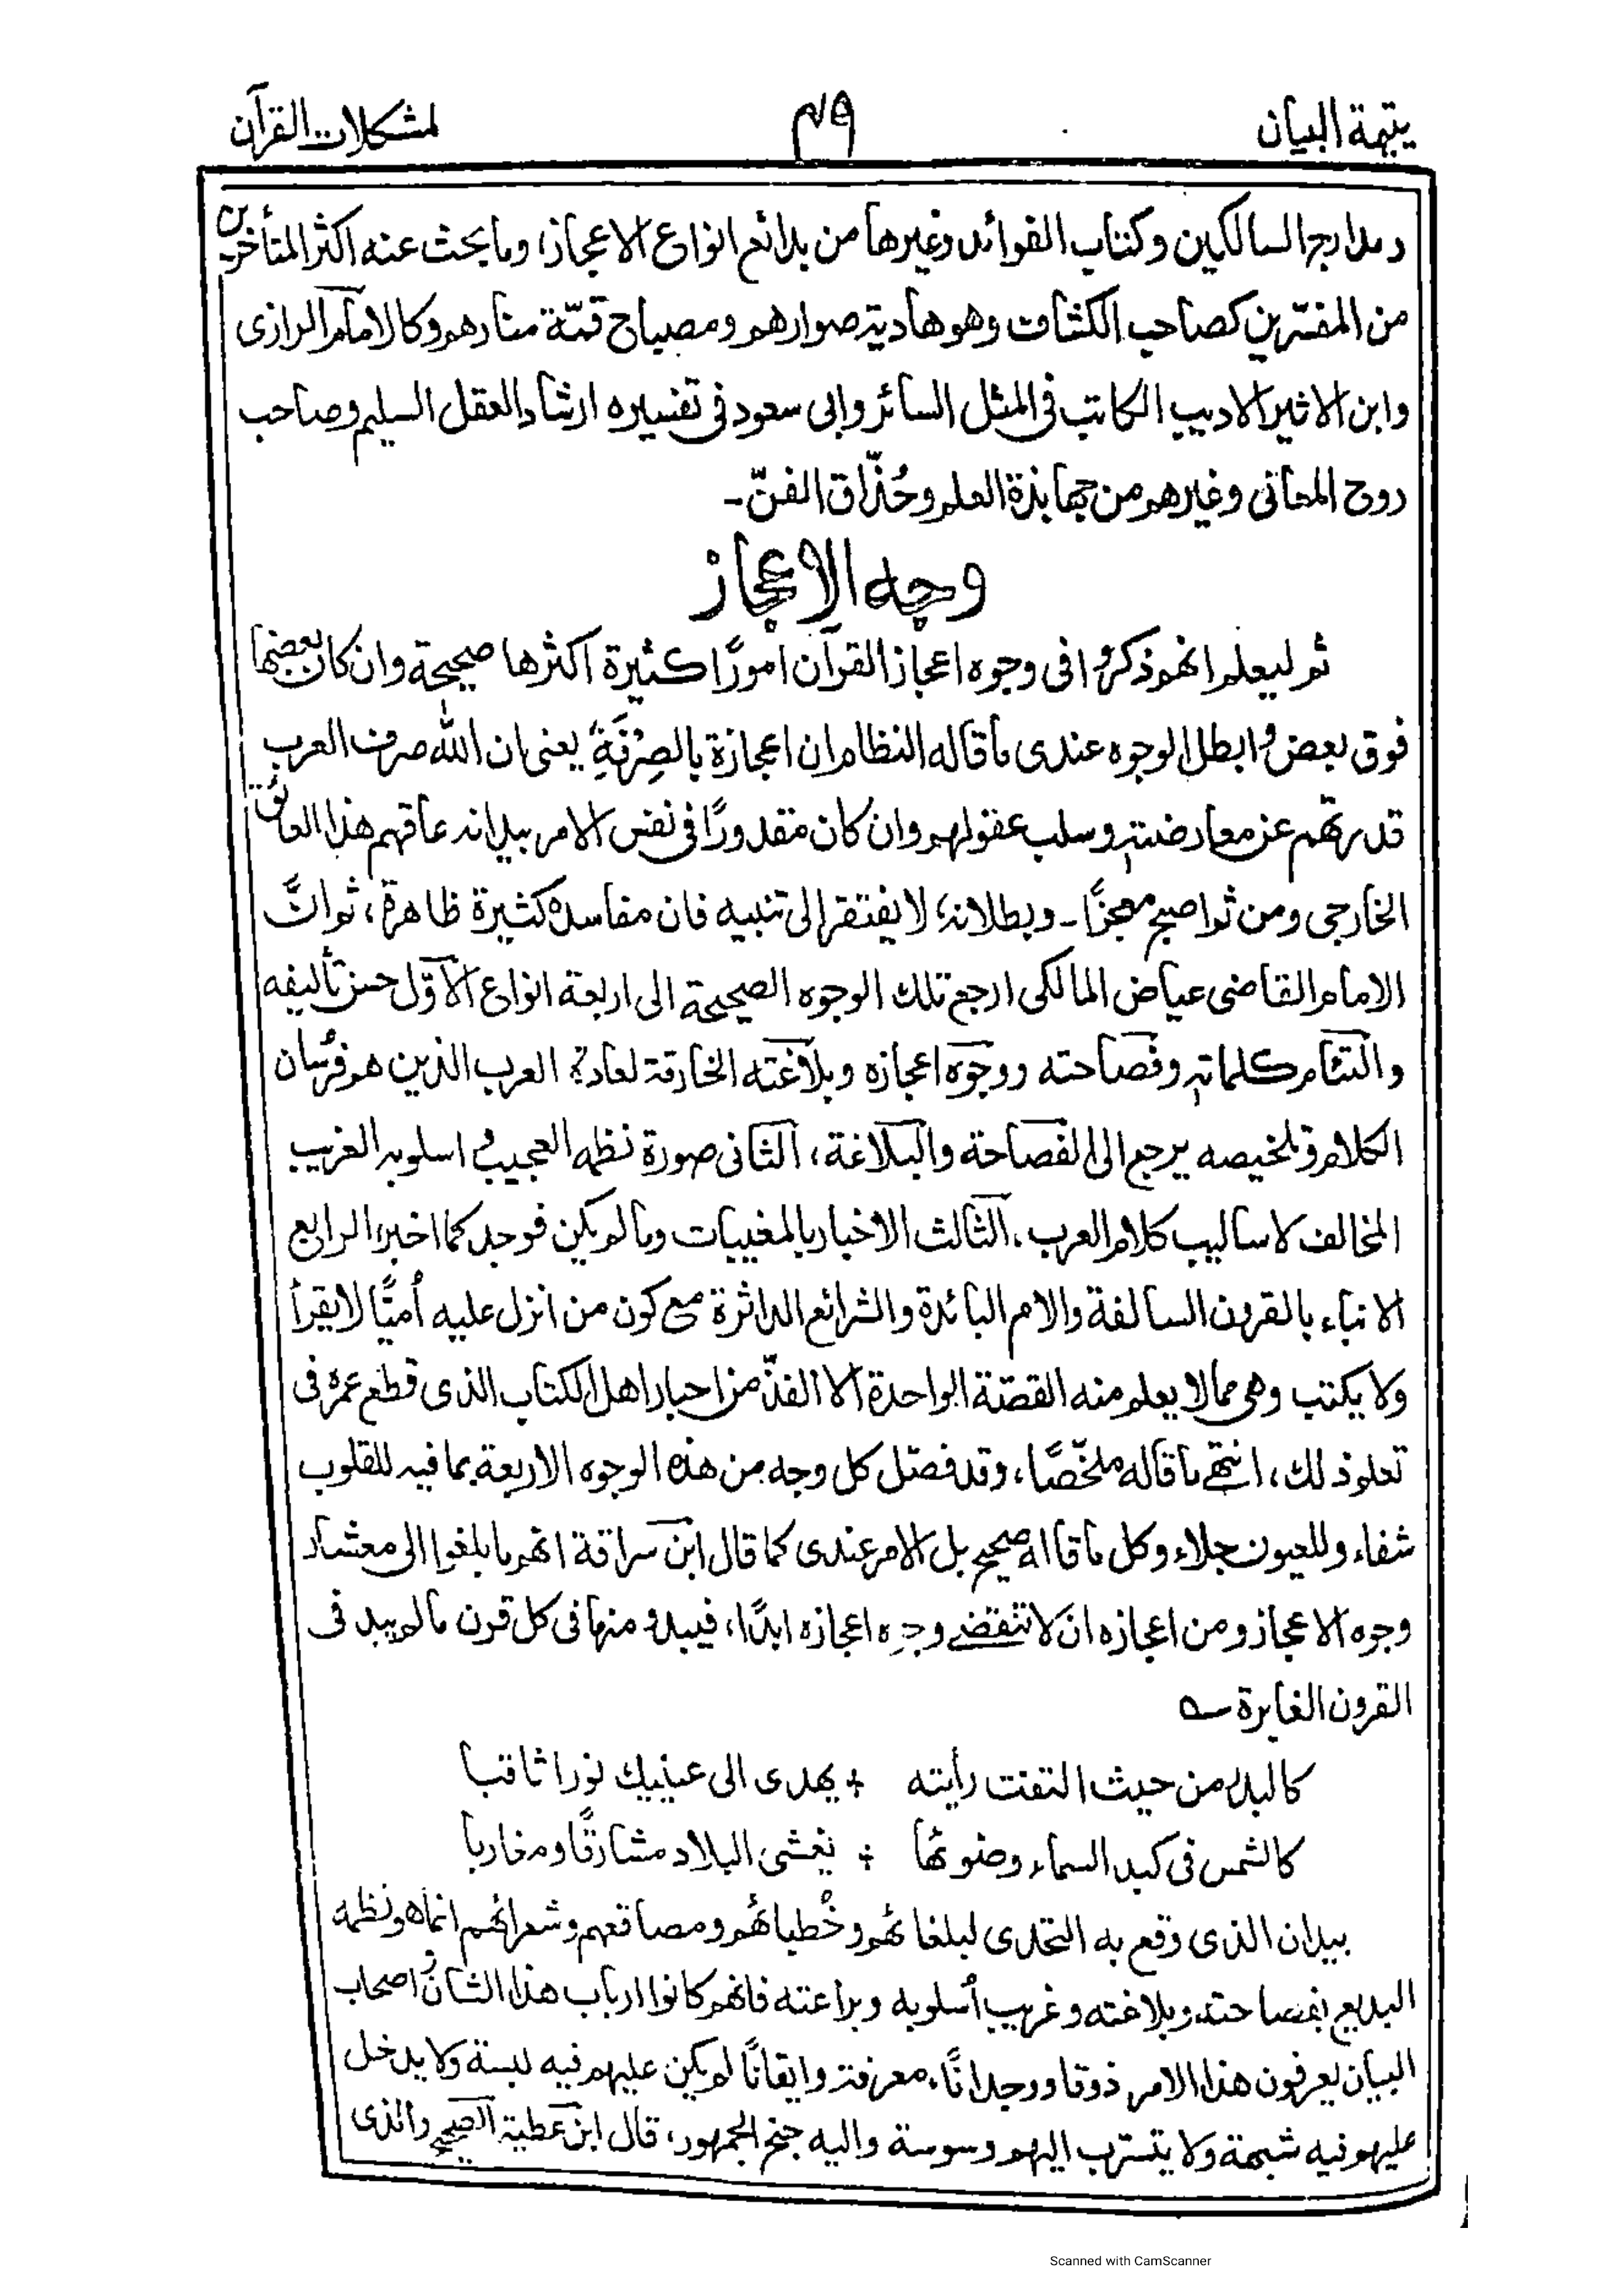 يتيمة البيان
٧٩
لمشكلات القرآن
ومدارج السالكين وكتاب الفوائد وغيرها من بدائع انواع الاعجاز، وما بحث عنه اكثر المتأخرين
من المفسّرين كصاحب الكشاف وهو هادية صوارهم ومصباح قمّة منارهم وكالامام الرازى
وابن الاثير الاديب الكاتب فى المثل السائر وابى سعود فى تفسيره ارشاد العقل السليم وصاحب
روح المعانى وغيرهم من جهابذة العلم وحُذّاق الفنّ۔
وجه الاعجاز
ثم ليعلم انهم ذكروا فى وجوه اعجاز القرآن امورًا كثيرة اكثرها صحيحة وان كان بعضها
فوق بعض وابطل الوجوه عندى ماقاله النظام ان اعجازة بالصِرْفَةِ يعنى ان الله صرف العرب
قدرتهم عن معارضته وسلب عقولهم وان كان مقدورًا فى نفس الامر بيد انه عاقهم هذا العائق
الخارجى ومن ثم اصبح معجزًا۔ وبطلانه لا يفتقر الى تنبيه فان مفاسدہ كثيرة ظاهرة، ثم انَّ
الامام القاضى عياض المالكى ارجع تلك الوجوه الصحيحة الى اربعة انواع الاوّل حسن تأليفه
والتئام كلماته وفصاحته ووجوه اعجازه وبلاغته الخارقة لعادة العرب الذين هم فرُسان
الكلام وتلخيصه يرجع الى الفصاحة والبلاغة، الثانى صورة نظمه العجيب واسلوبه الغريب
المخالف لاساليب كلام العرب، الثالث الاخبار بالمغيبات ومالم يكن فوجد كما اخبر، الرابع
الانباء بالقرون السالفة والامم البائدة والشرائع الداثرة مع كون من انزل عليه أميًّا لايقرأ
ولا يكتب وهى مما لا يعلم منه القصّة الواحدة الا الفذّ من احبار اهل الكتاب الذى قطع عمرہ فى
تعلم ذلك، انتهى ماقاله ملخّصًا، وقد فصّل كل وجه من هذه الوجوه الاربعة بما فيه للقلوب
شفاء وللعيون جلاء وكل ماقاله صحيح بل الامر عندى كما قال ابن سراقة انهم ما بلغوا الى معشار
وجوه الاعجاز ومن اعجازه ان لا تنقضى وجوه اعجازه ابدًا، فيبدو منها فى كل قرن مالم يبد فى
القرون الغابرة ؎
كالبدر من حيث التفت رأيته ÷ يهدى الى عينيك نورا ثاقبا
كالشمس فى كبد السماء وضوئها ÷ يغشى البلاد مشارقًا ومغاربا
بيد ان الذى وقع به التحدى لبلغائهم وخُطبائهم ومصاقعهم وشعرائهم انما هو نظمه
البديع بفصاحته وبلاغته وغريب أسلوبه وبراعته فانهم كانوا ارباب هذا الشان واصحاب
البيان يعرفون هذا الامر ذوقا ووجدانًا، معرفة وايقانًا لم يكن عليهم فيه لبسة ولا يدخل
عليهم فيه شبهة ولا يتسرّب اليهم وسوسة واليه جنح الجمهور، قال ابن عطية الصحيح والذى
Scanned with CamScanner